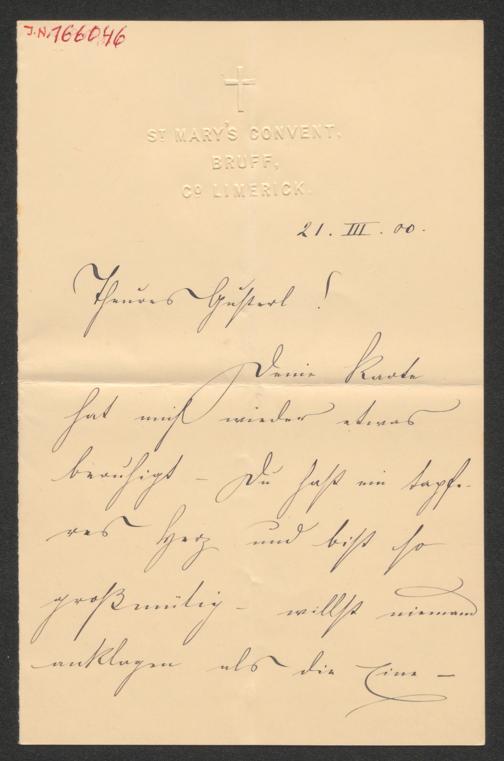 J.N. 166046
ST MARY'S CONVENT,
BRUFF,
CO LIMERICK.
21. III. 00.
Theures Gusterl!
Deine Karte
hat mich wieder etwas
beruhigt – Du hast ein tapfe-
res Herz und bist so
großmütig – willst niemand
anklagen als die Eine –